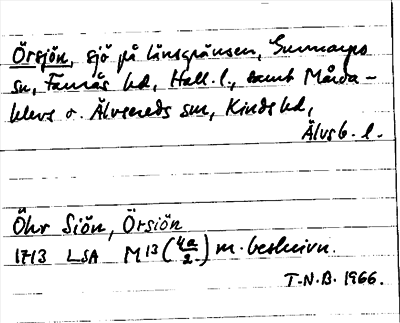 Örsjön, sjö på länsgränsen, Gunnarps
sn, Faurås hd, Hall. l., samt Mårda-
klevs o. Älvsereds snr, Kinds hd,
Älvsb. l.
Öhr Siön, Örsiön
1713 LSA M 13 (4a/2) m. beskrivn.
T.N.B. 1966.